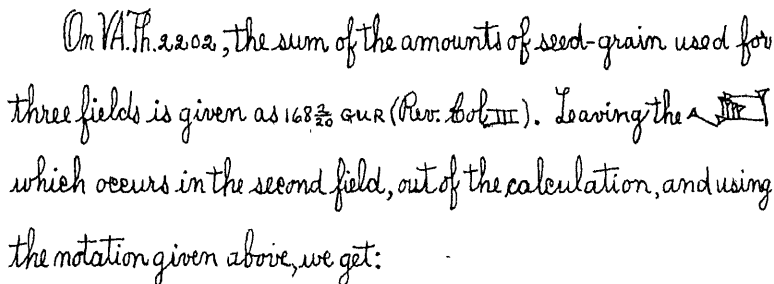 On VA.Th.2202, the sum of the amounts of seed-grain used for
three fields is given as 168 2/20 GUR (Rev. Col. III). Leaving the
which occurs in the second field, out of the calculation, and using
the notation given above, we get: